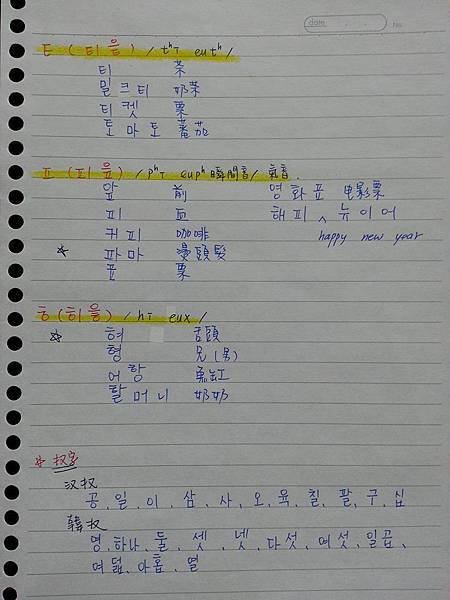 date . .
No.
ㅌ (티읕) / tʰi eutʰ /
티 茶
밀크티 奶茶
티켓 票
토마토 蕃茄
ㅍ (피읖) / pʰi eupʰ 瞬間音 / 氣音
앞 前 영화표 电影票
피 血 해피 뉴이어
커피 咖啡 happy new year
☆ 파마 燙頭髮
표 票
ㅎ (히읗) / hi eux /
☆ 혀 舌頭
형 兄 (男)
어항 魚缸
할머니 奶奶
☆ 수字
汉
공, 일, 이, 삼, 사, 오, 육, 칠, 팔, 구, 십
韓
영, 하나, 둘, 셋, 넷, 다섯, 여섯, 일곱,
여덟, 아홉, 열